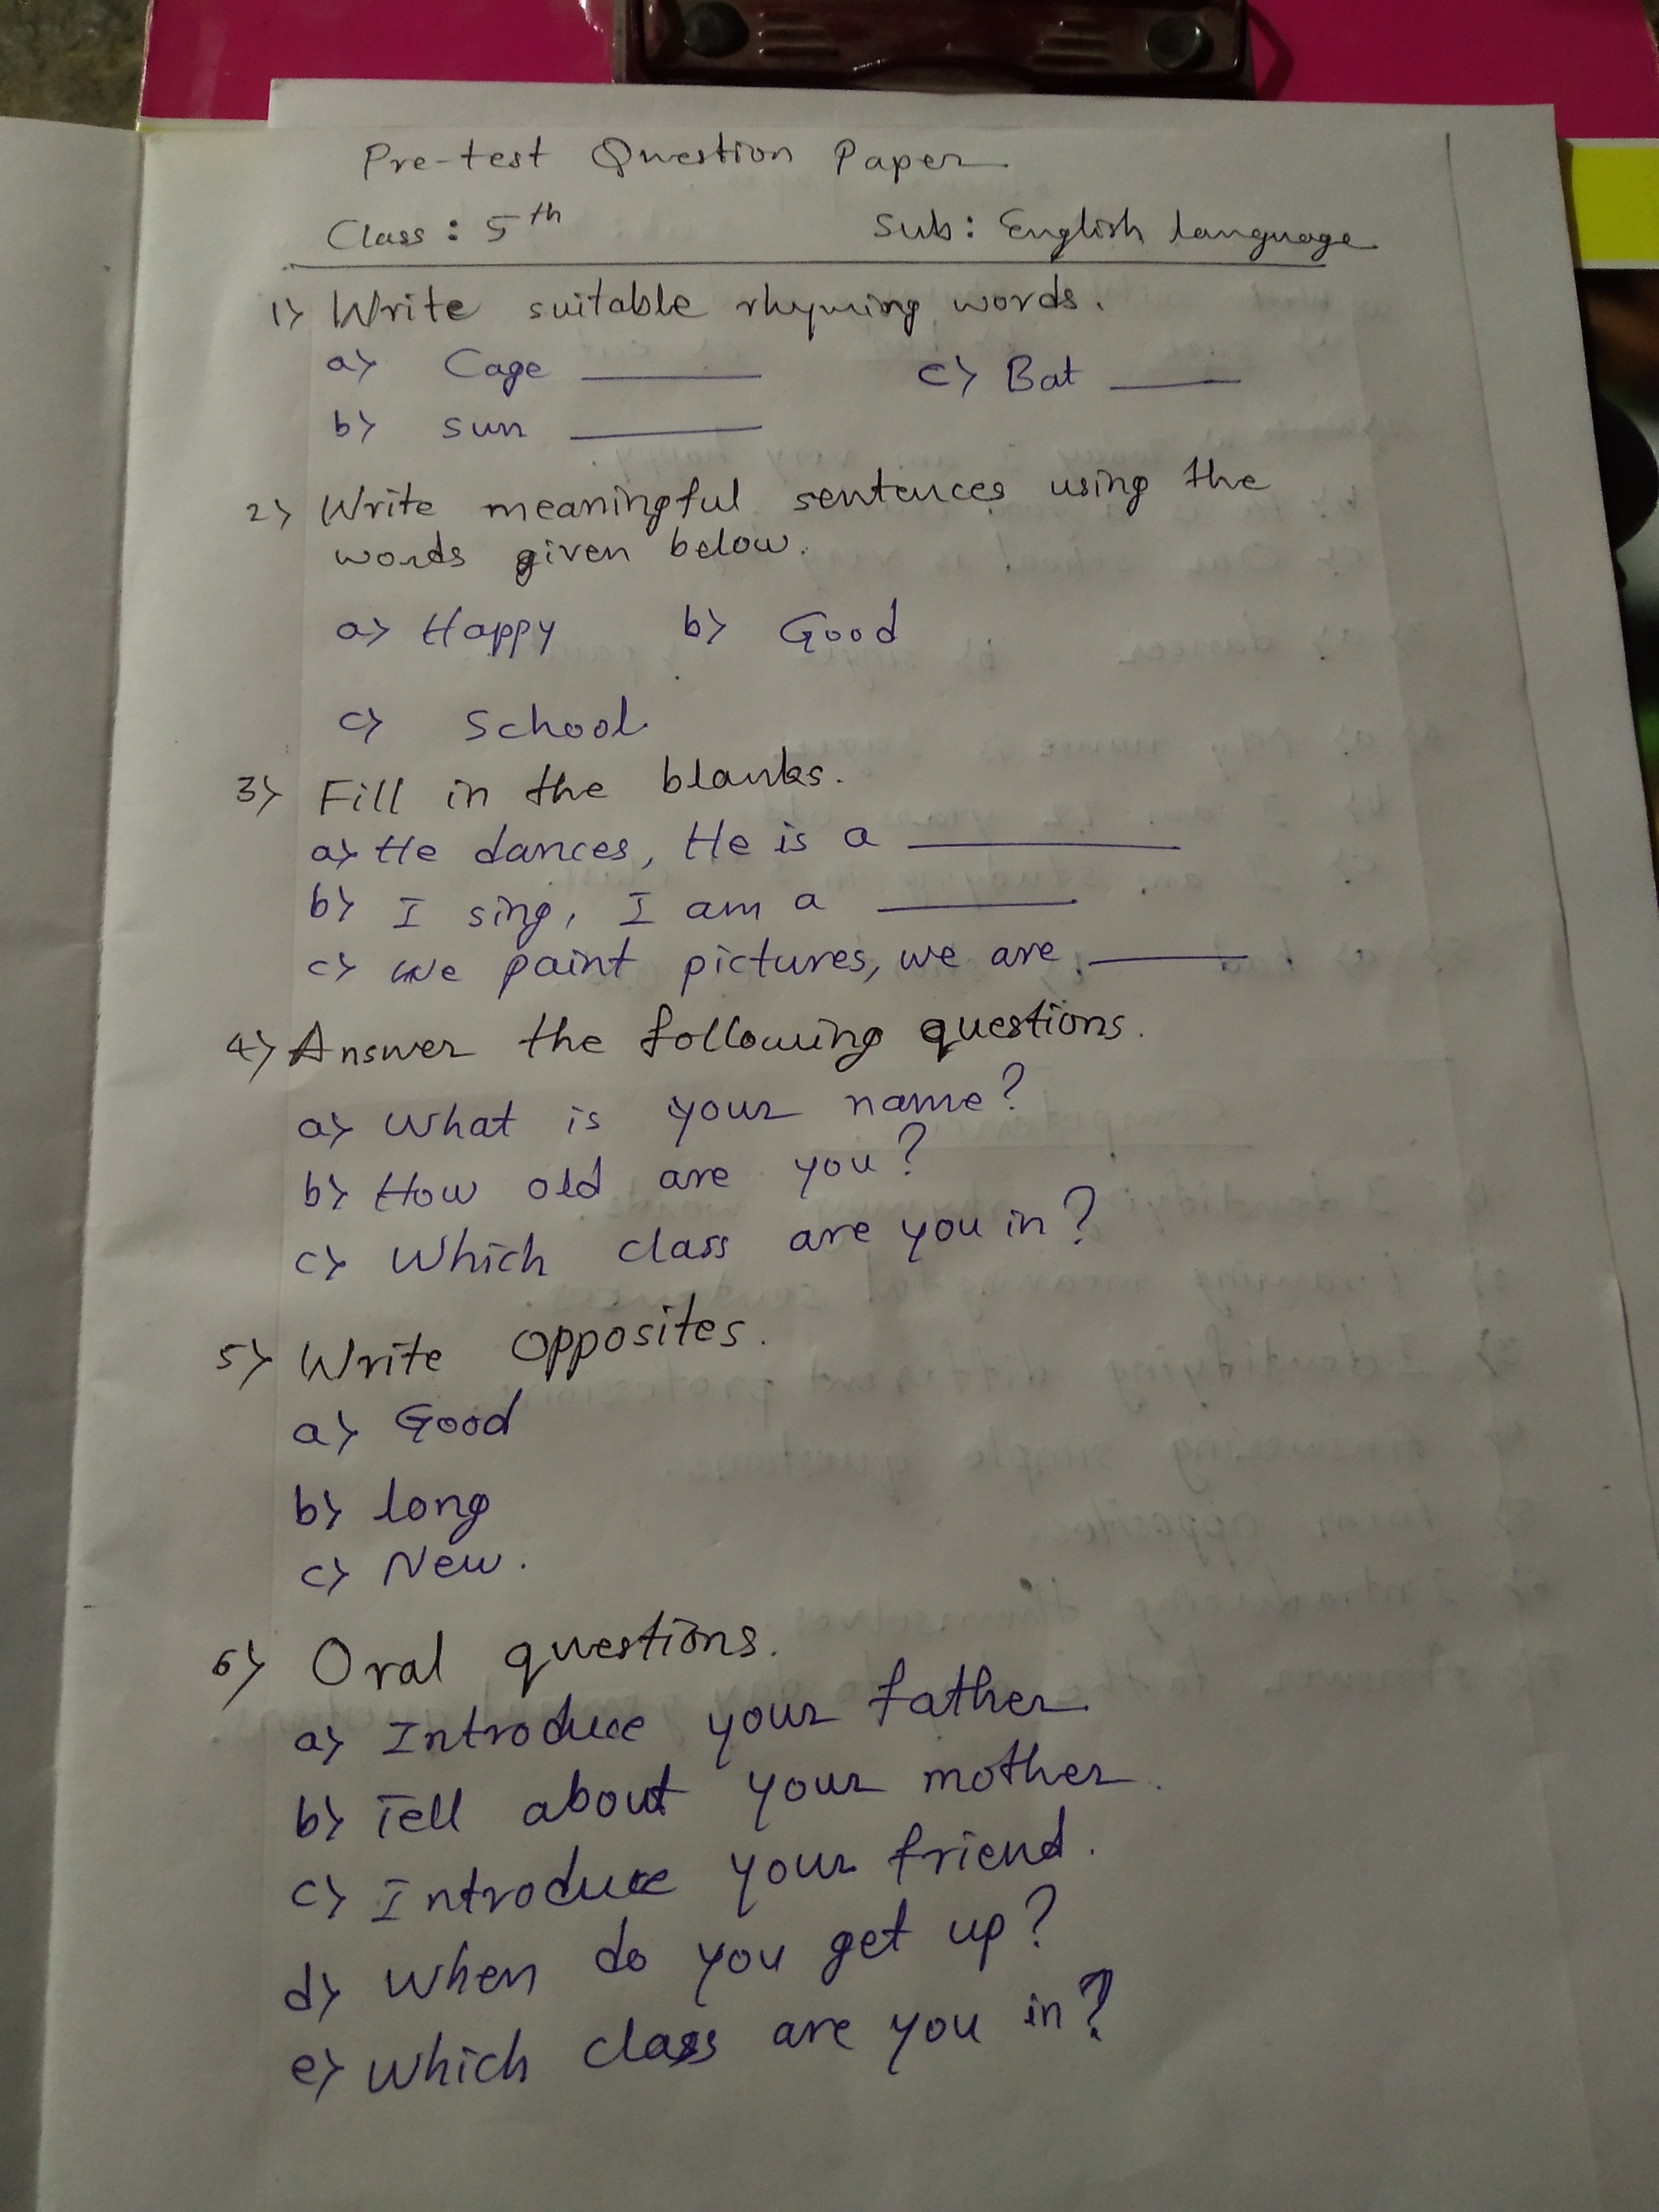 Pre-test Question Paper
Class : 5th Sub: English language
1) Write suitable rhyming words.
a) Cage ______ c) Bat ______
b) sun ______
2) Write meaningful sentences using the
words given below.
a) Happy b) Good
c) School
3) Fill in the blanks.
a) He dances, He is a ______
b) I sing, I am a ______
c) We paint pictures, we are ______.
4) Answer the following questions.
a) What is your name?
b) How old are you?
c) Which class are you in?
5) Write opposites.
a) Good
b) long
c) New.
6) Oral questions.
a) Introduce your father.
b) Tell about your mother.
c) Introduce your friend.
d) When do you get up?
e) Which class are you in?